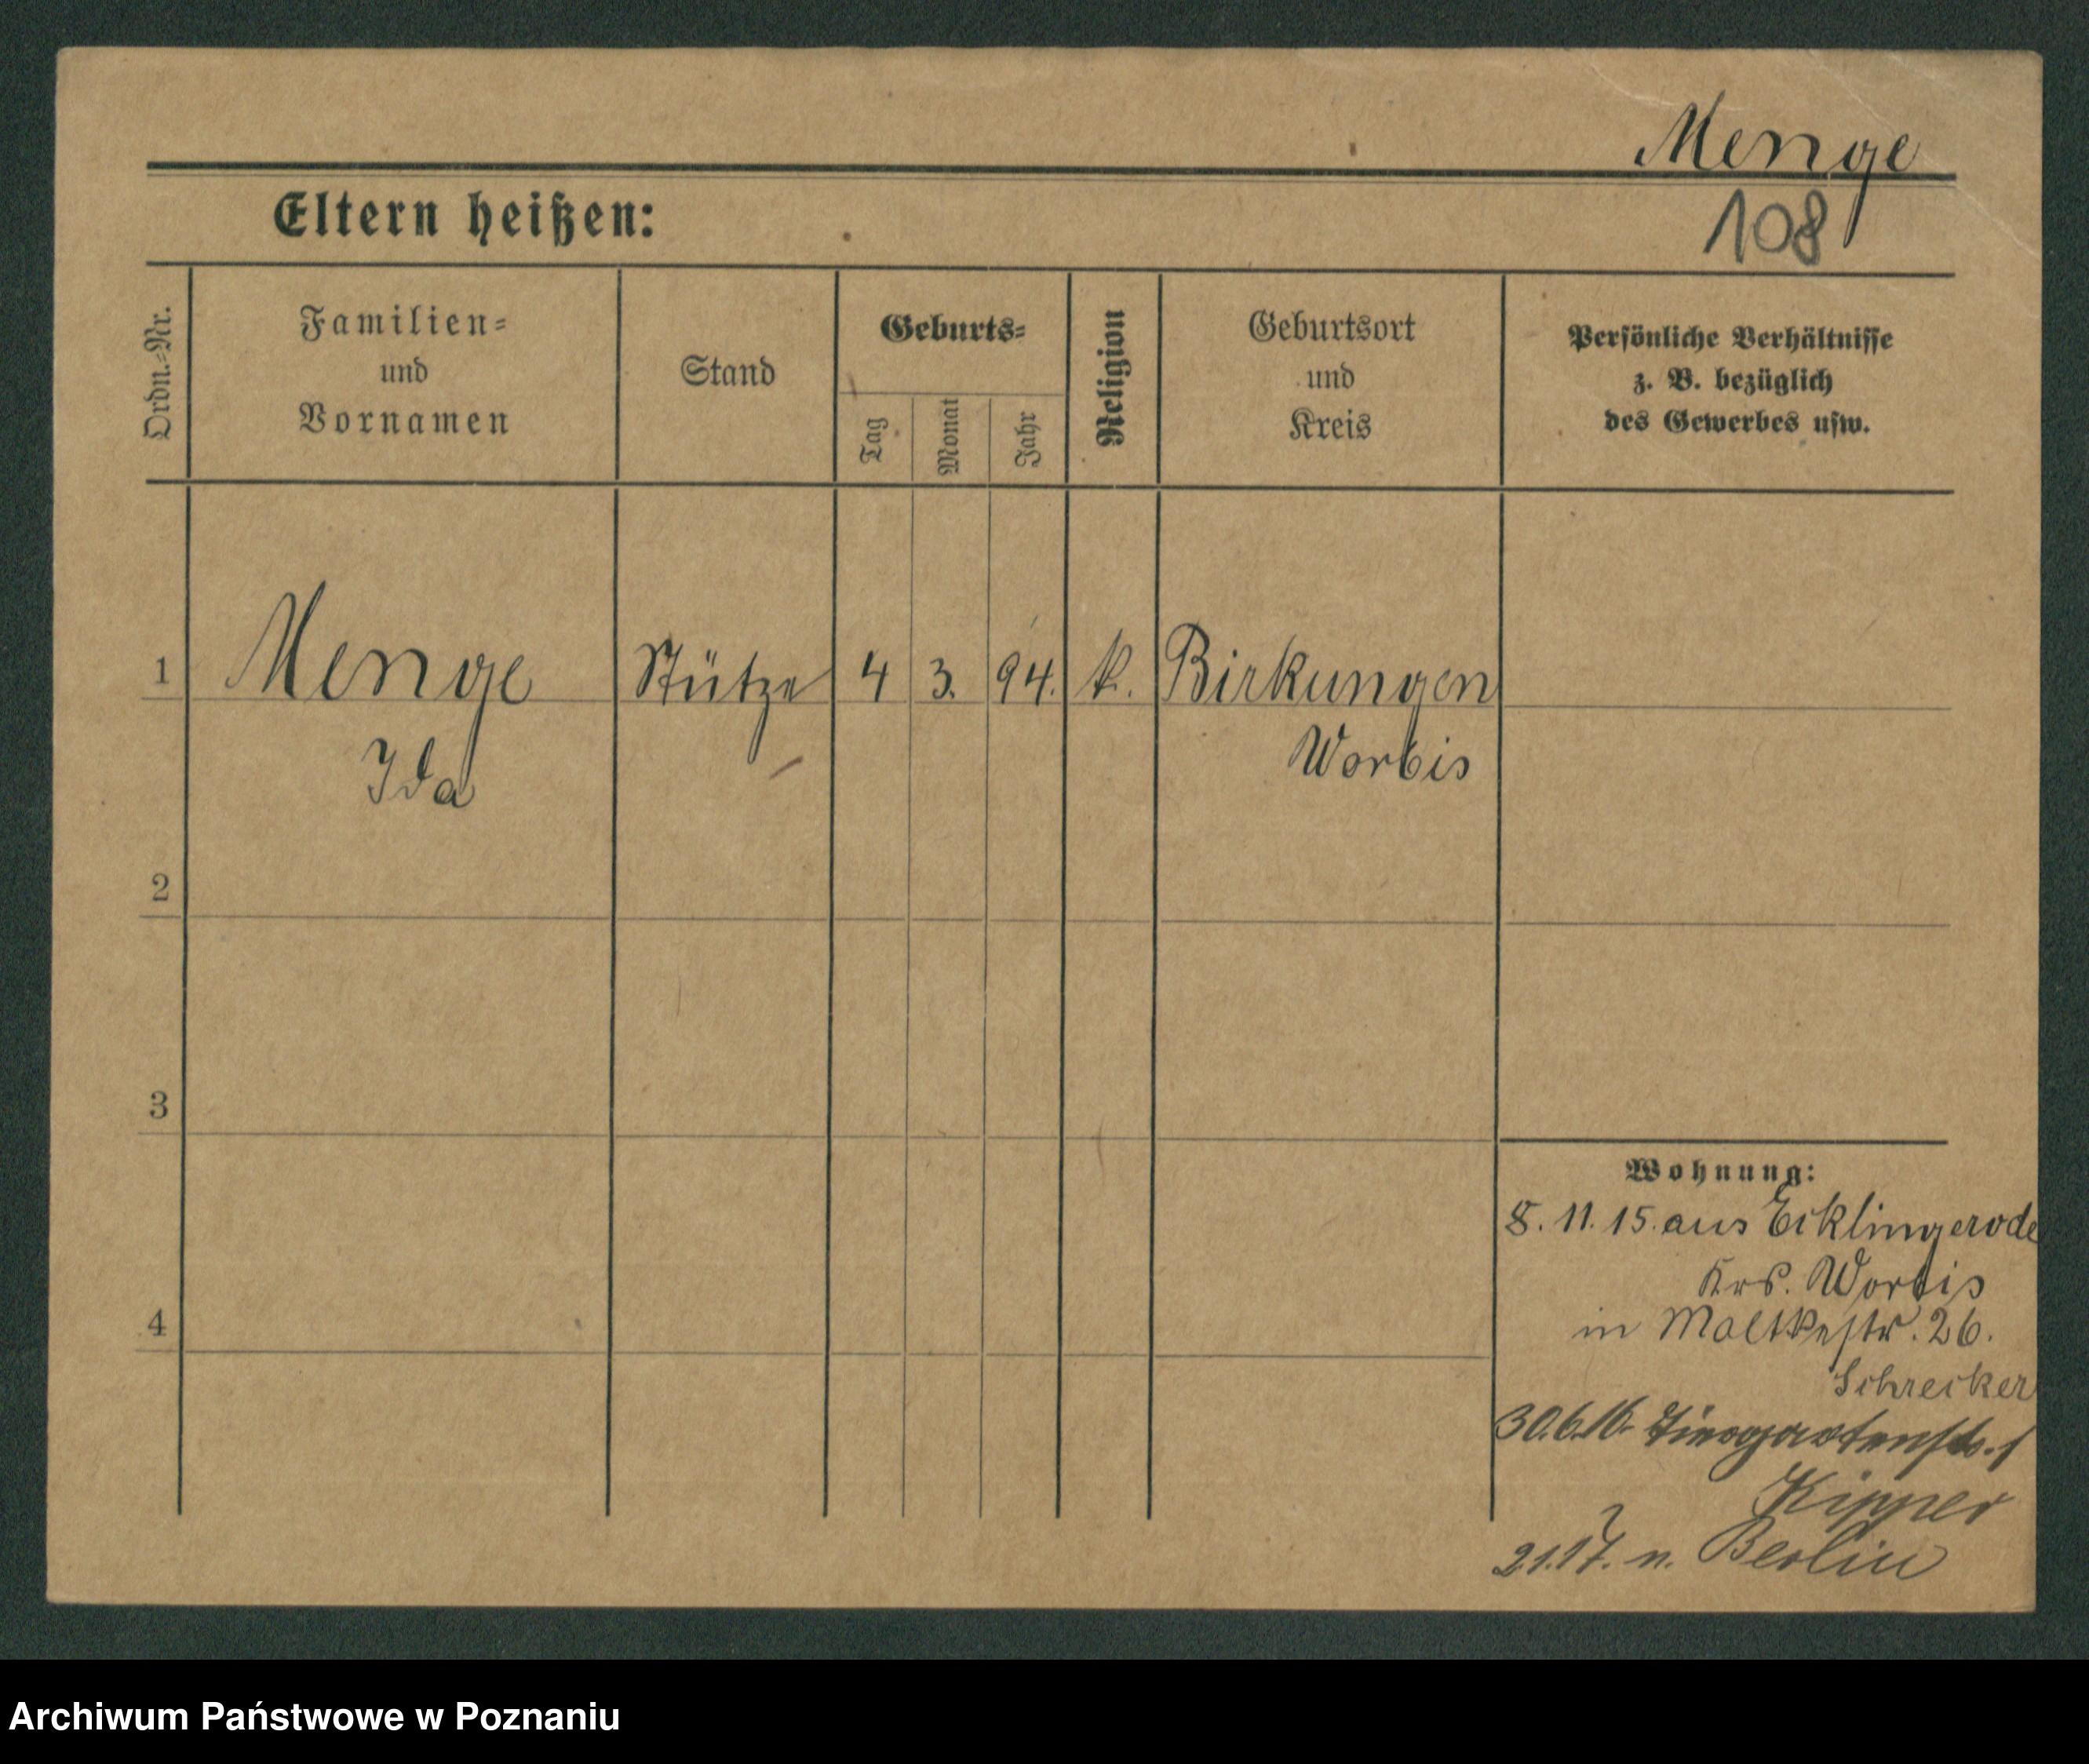 Menge
108
Eltern heißen:
Ordn.-Nr.
Familien-
und
Vornamen
Stand
Geburts-
Tag
Monat
Jahr
Religion
Geburtsort
und
Kreis
Persönliche Verhältnisse
z. B. bezüglich
des Gewerbes usw.
1
Menge Stütze 4 3. 94. k. Birkungen
Ida Worbis
2
3
4
Wohnung:
8. 11. 15. aus Ecklingerode
Krs. Worbis
in Moltkestr. 26.
Schrecker
30.6.16. Tiergartenstr. 1
Kipper
21.17. n. Berlin
Archiwum Państwowe w Poznaniu